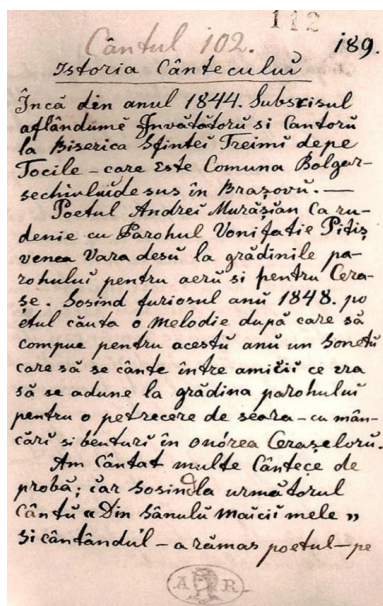 112
Cântul 102. 189.
Istoria Cântecului
Încă din anul 1844. Subscrisul
aflândumĕ Învătătorŭ si Cantorŭ
la Biserica Sfintei Treimi depe
Tocile – care Este Comuna Bolgar-
sechiuluide sus în Brașovŭ. —
Poetul Andrei Murășian Ca ru-
denie cu Parohul Vonifatie Pitiș
venea Vara desŭ la grădinile pa-
rohului pentru aerŭ si pentru Cera-
șe. Sosind furiosul anŭ 1848. po
etul căuta o Melodie după care să
compue pentru acestŭ anŭ un Sonetŭ
care să se cânte între amicii ce era
să se adune la grădina parohului
pentru o petrecere de seara – cu mân-
cărŭ si beuturŭ în onórea Ceraseloru.
Am Cântat multe Cântece de
probă; iar Sosind la următorul
Cântŭ «Din Sânulŭ Maicii mele»
Si cântândul – a rămas poetul – pe
A R